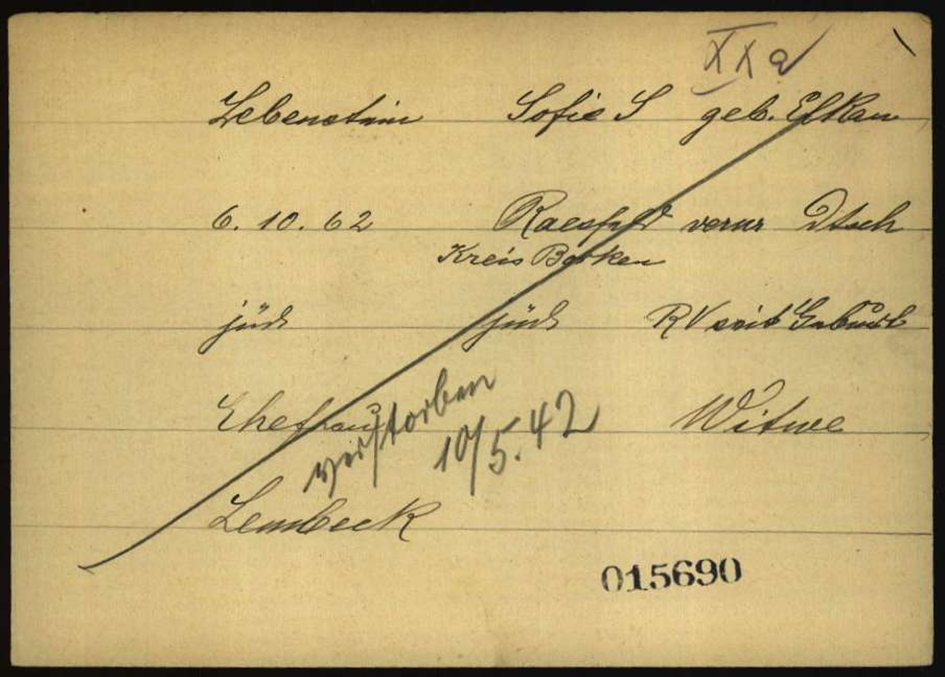 XXa
Lebenstein Sofie S geb. Elkan
6. 10. 62 Raesfeld Dtsch
Kreis Borken
jüd jüd RV seit Geburt
Ehefrau Witwe
verstorben
10/5.42
Lembeck
015690